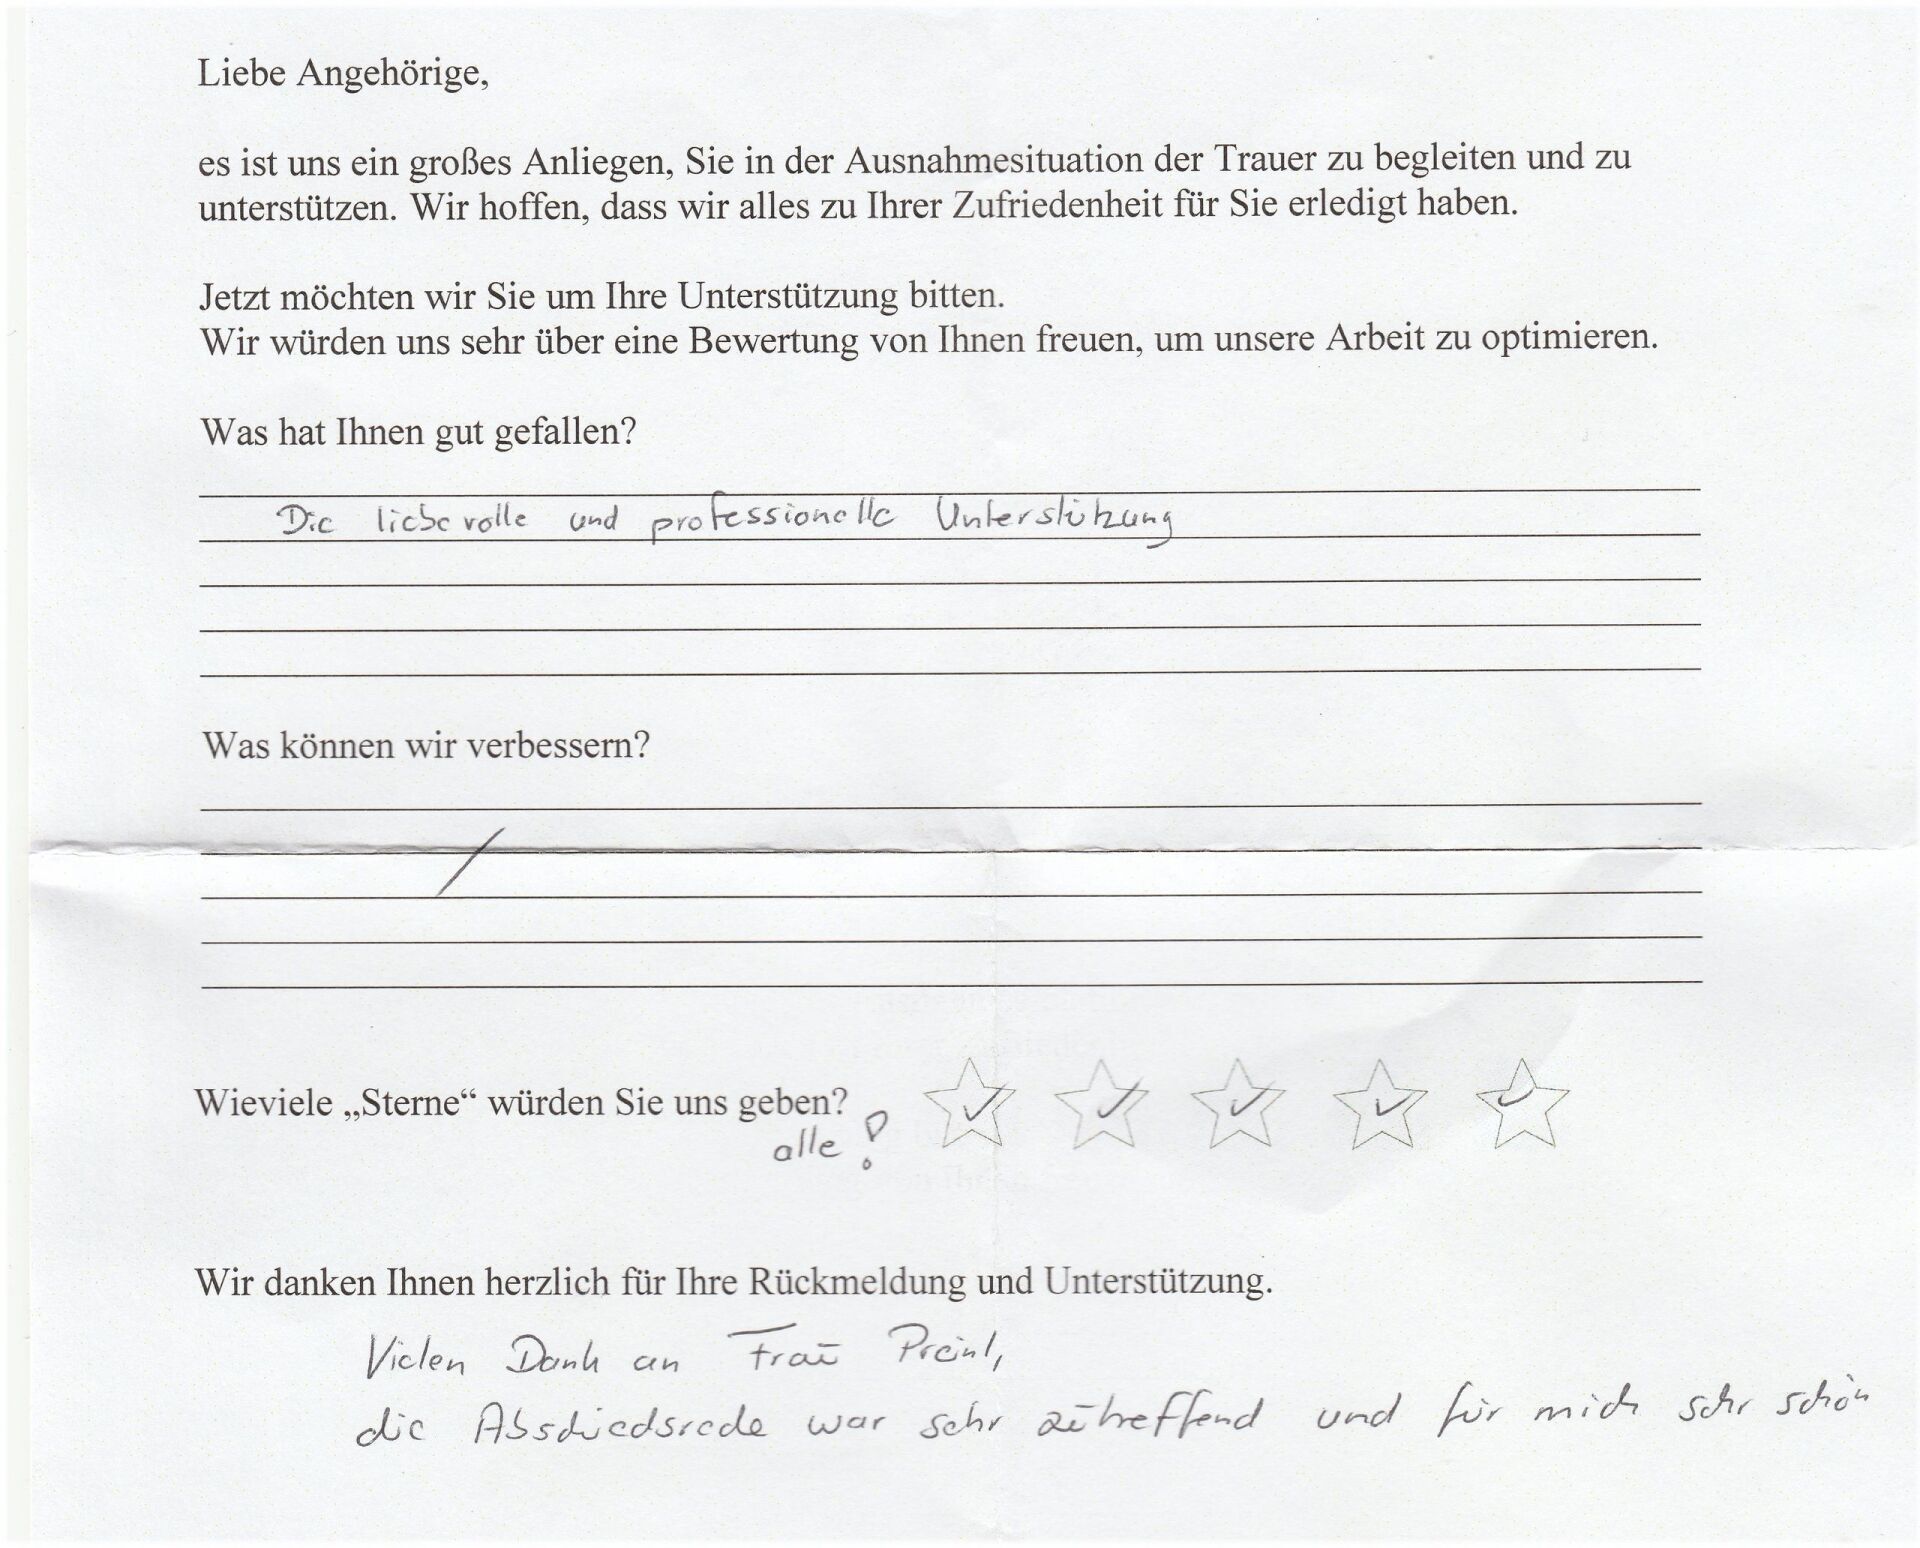 Liebe Angehörige,
es ist uns ein großes Anliegen, Sie in der Ausnahmesituation der Trauer zu begleiten und zu
unterstützen. Wir hoffen, dass wir alles zu Ihrer Zufriedenheit für Sie erledigt haben.
Jetzt möchten wir Sie um Ihre Unterstützung bitten.
Wir würden uns sehr über eine Bewertung von Ihnen freuen, um unsere Arbeit zu optimieren.
Was hat Ihnen gut gefallen?
Die liebevolle und professionelle Unterstützung
Was können wir verbessern?
/
Wieviele „Sterne“ würden Sie uns geben?
alle!
Wir danken Ihnen herzlich für Ihre Rückmeldung und Unterstützung.
Vielen Dank an Frau Preinl,
die Abschiedsrede war sehr zutreffend und für mich sehr schön